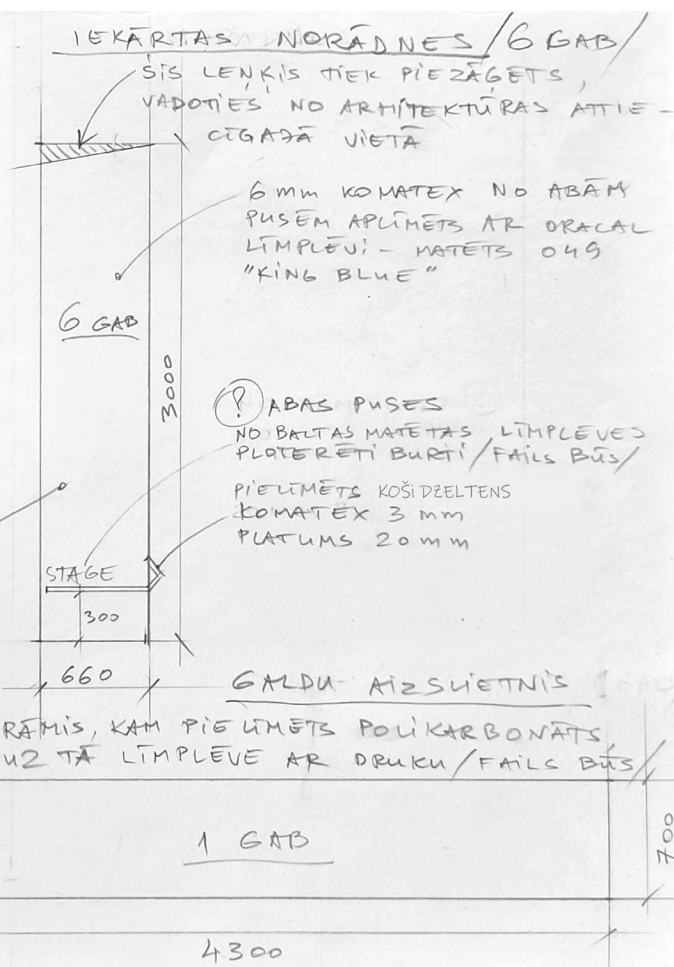 IEKĀRTAS NORĀDNES /6 GAB/
ŠIS LEŅĶIS TIEK PIEZĀĢĒTS,
VADOTIES NO ARHITEKTŪRAS ATTIE-
CĪGAJĀ VIETĀ
6 mm KOMATEX NO ABĀM
PUSĒM APLĪMĒTS AR ORACAL
LĪMPLĒVI - MATĒTS 049
"KING BLUE"
6 GAB
3000
? ABAS PUSES
NO BALTAS MATĒTAS LĪMPLĒVES
PLOTERĒTI BURTI /FAILS BŪS/
PIELĪMĒTS KOŠi DZELTENS
KOMATEX 3 mm
PLATUMS 20 mm
STAGE
300
660
GALDU AIZSLIETNIS
RĀMIS, KAM PIELĪMĒTS POLIKARBONĀTS,
UZ TĀ LĪMPLĒVE AR DRUKU /FAILS BŪS/
1 GAB
700
4300